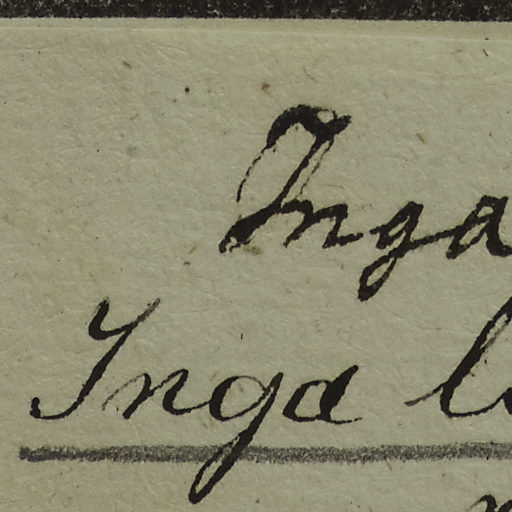 Inga
Inga